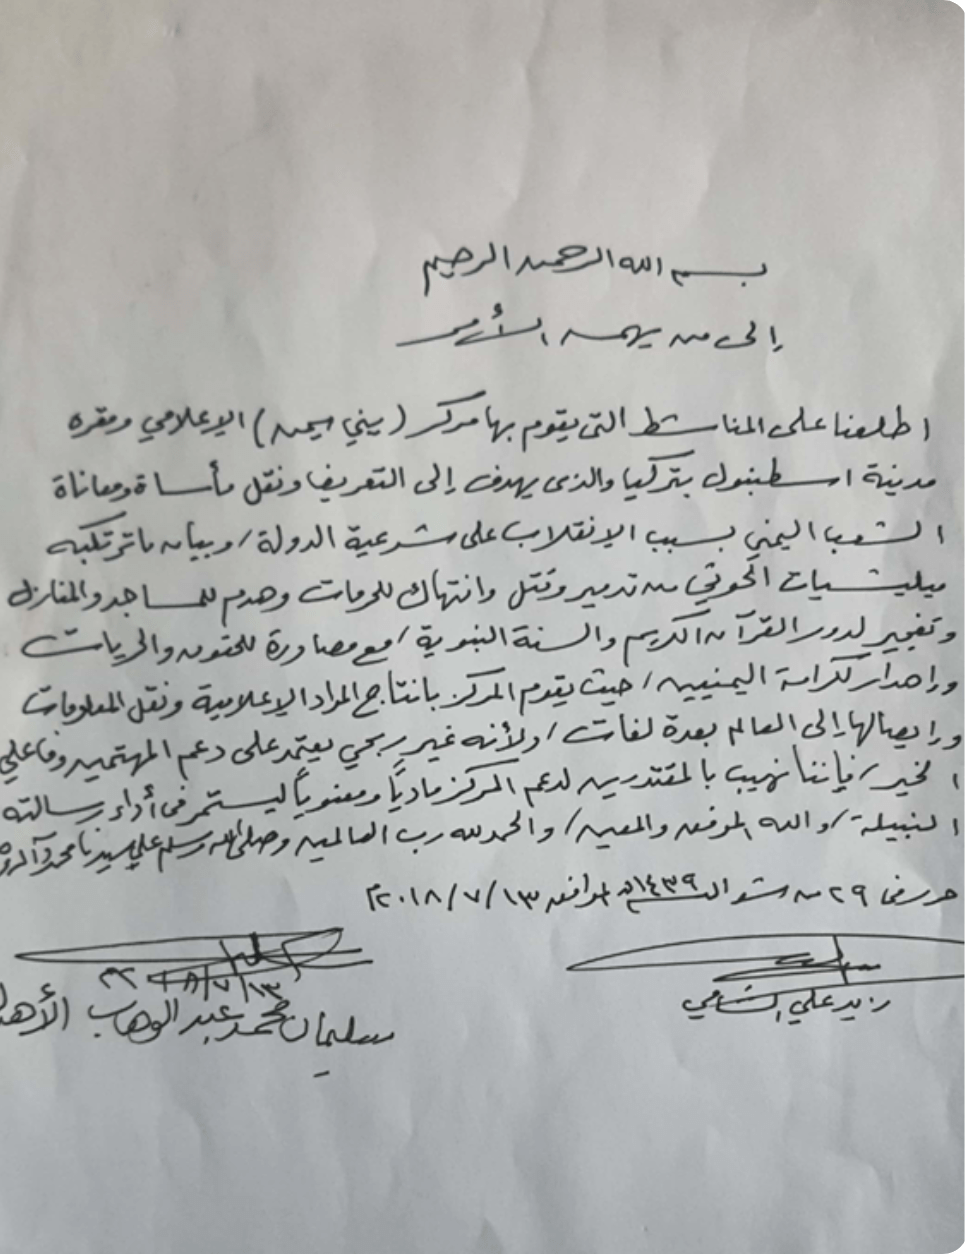 بسم الله الرحمن الرحيم
إلى من يهمه الأمر
اطلعنا على المناشط التي يقوم بها مركز (يني يمن) الإعلامي ومقره
مدينة اسطنبول بتركيا والذي يهدف إلى التعريف ونقل مأساة ومعاناة
الشعب اليمني بسبب الانقلاب على شرعية الدولة / وبيان ما ترتكبه
ميليشيات الحوثي من تدمير وقتل وانتهاك للحرمات وهدم للمساجد والمنازل
وتفجير لدور القرآن الكريم والسنة النبوية / مع مصادرة للحقوق والحريات
وإهدار لكرامة اليمنيين / حيث يقوم المركز بإنتاج المواد الإعلامية ونقل المعلومات
وإيصالها إلى العالم بعدة لغات / ولأنه غير ربحي يعتمد على دعم المهتمين وفاعلي
الخير / فإننا نهيب بالمقتدرين لدعم المركز مادياً ومعنوياً ليستمر في أداء رسالته
النبيلة / والله الموفق والمعين / والحمد لله رب العالمين وصلى الله وسلم على سيدنا محمد وآله
حرر في ٢٩ من شوال ١٤٣٩هـ الموافق ١٣ / ٧ / ٢٠١٨م
زيد علي الشامي
١٣/٧/١٨ ٢٠م
سليمان محمد عبدالوهاب